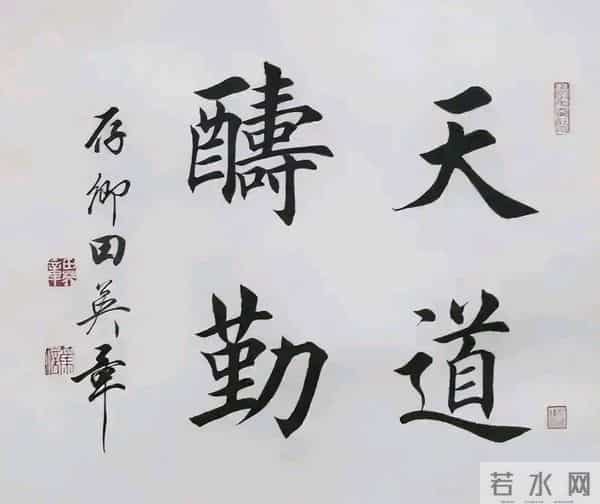 天道
醻勤
存卿田英章
若水网